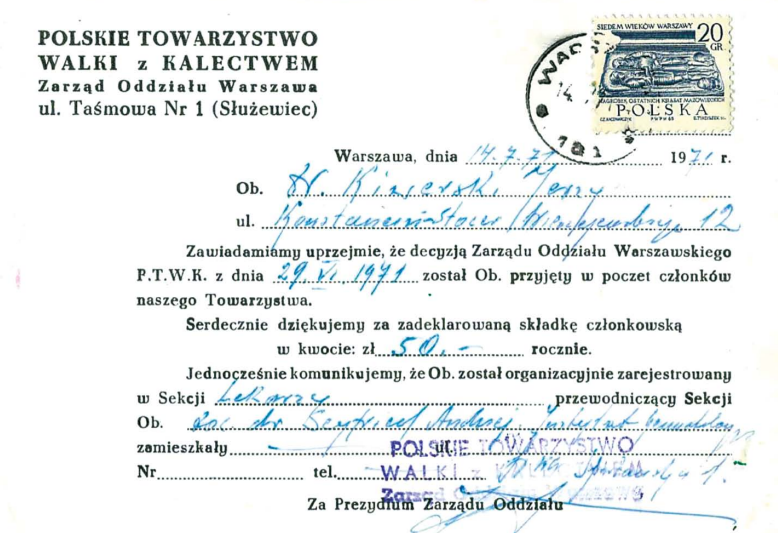 POLSKIE TOWARZYSTWO
WALKI z KALECTWEM
Zarząd Oddziału Warszawa
ul. Taśmowa Nr 1 (Służewiec)
SIEDEM WIEKÓW WARSZAWY
20
GR
NAGROBEK OSTATNICH KSIĄŻĄT MAZOWIECKICH
POLSKA
Warszawa, dnia 14.7.71 1971 r.
Ob. Jerzy
ul. 12
Zawiadamiamy uprzejmie, że decyzją Zarządu Oddziału Warszawskiego
P.T.W.K. z dnia 29. VI. 1971 został Ob. przyjęty w poczet członków
naszego Towarzystwa.
Serdecznie dziękujemy za zadeklarowaną składkę członkowską
w kwocie: zł 50.- rocznie.
Jednocześnie komunikujemy, że Ob. został organizacyjnie zarejestrowany
w Sekcji Lekarzy przewodniczący Sekcji
Ob. doc. dr. Andrzej, Instytut
zamieszkały ul.
POLSKIE TOWARZYSTWO
Nr tel.
WALKI z KALECTWEM
Zarząd
Za Prezydium Zarządu Oddziału